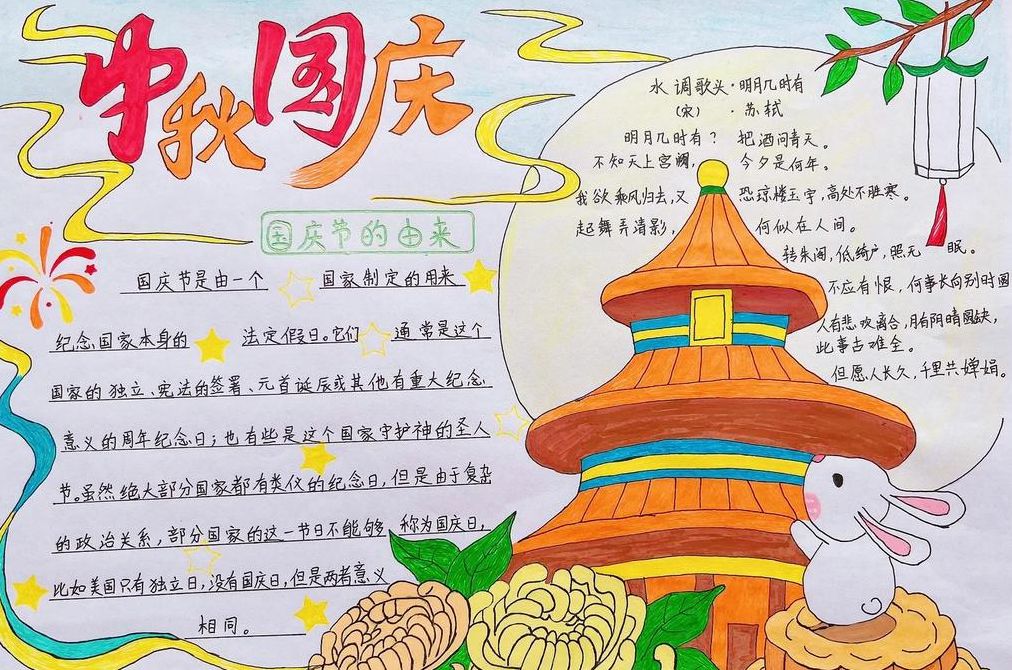 中秋国庆
国庆节的由来
国庆节是由一个 国家制定的用来
纪念国家本身的 法定假日。它们 通常是这个
国家的独立、宪法的签署、元首诞辰或其他有重大纪念
意义的周年纪念日；也有些是这个国家守护神的圣人
节。虽然绝大部分国家都有类似的纪念日，但是由于复杂
的政治关系，部分国家的这一节日不能够 称为国庆日，
比如美国只有独立日，没有国庆日，但是两者意义
相同。
水调歌头·明月几时有
（宋）·苏轼
明月几时有？ 把酒问青天。
不知天上宫阙， 今夕是何年。
我欲乘风归去，又 恐琼楼玉宇，高处不胜寒。
起舞弄清影， 何似在人间。
转朱阁，低绮户，照无 眠。
不应有恨，何事长向别时圆
人有悲欢离合，月有阴晴圆缺，
此事古难全。
但愿人长久，千里共婵娟。